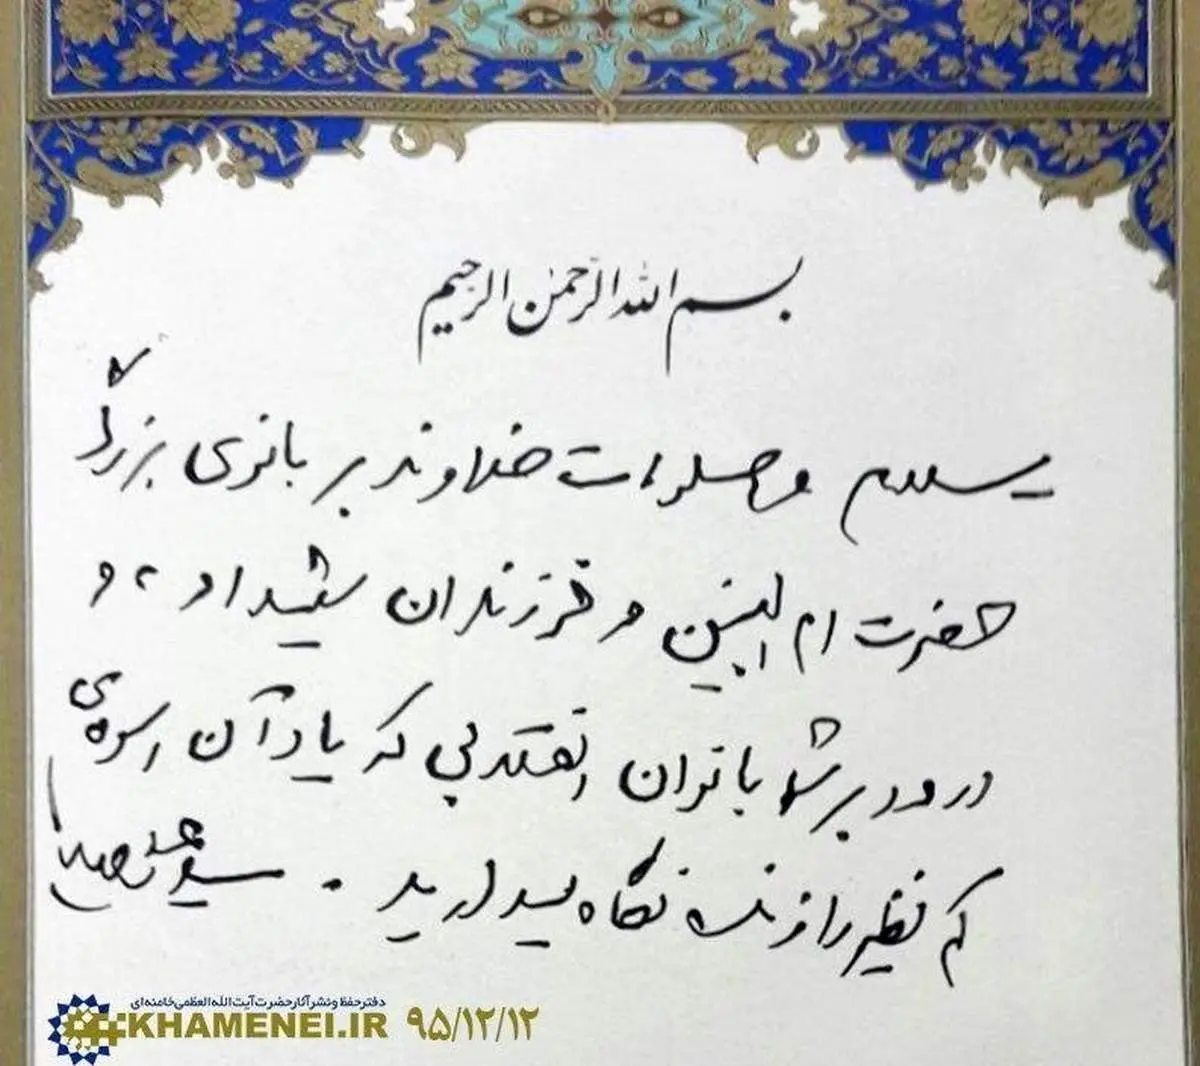 بسم الله الرّحمن الرّحیم
سلام و صلوات خداوند بر بانوی بزرگ
حضرت ام البنین و فرزندان شهید او، و
درود بر شما بانوان انقلابی که یاد آن اسوه‌ی
کم نظیر را زنده نگاه میدارید.
سیدعلی خامنه‌ای
دفتر حفظ و نشر آثار حضرت آیت‌الله‌العظمی خامنه‌ای
KHAMENEI.IR ۹۵/۱۲/۱۲